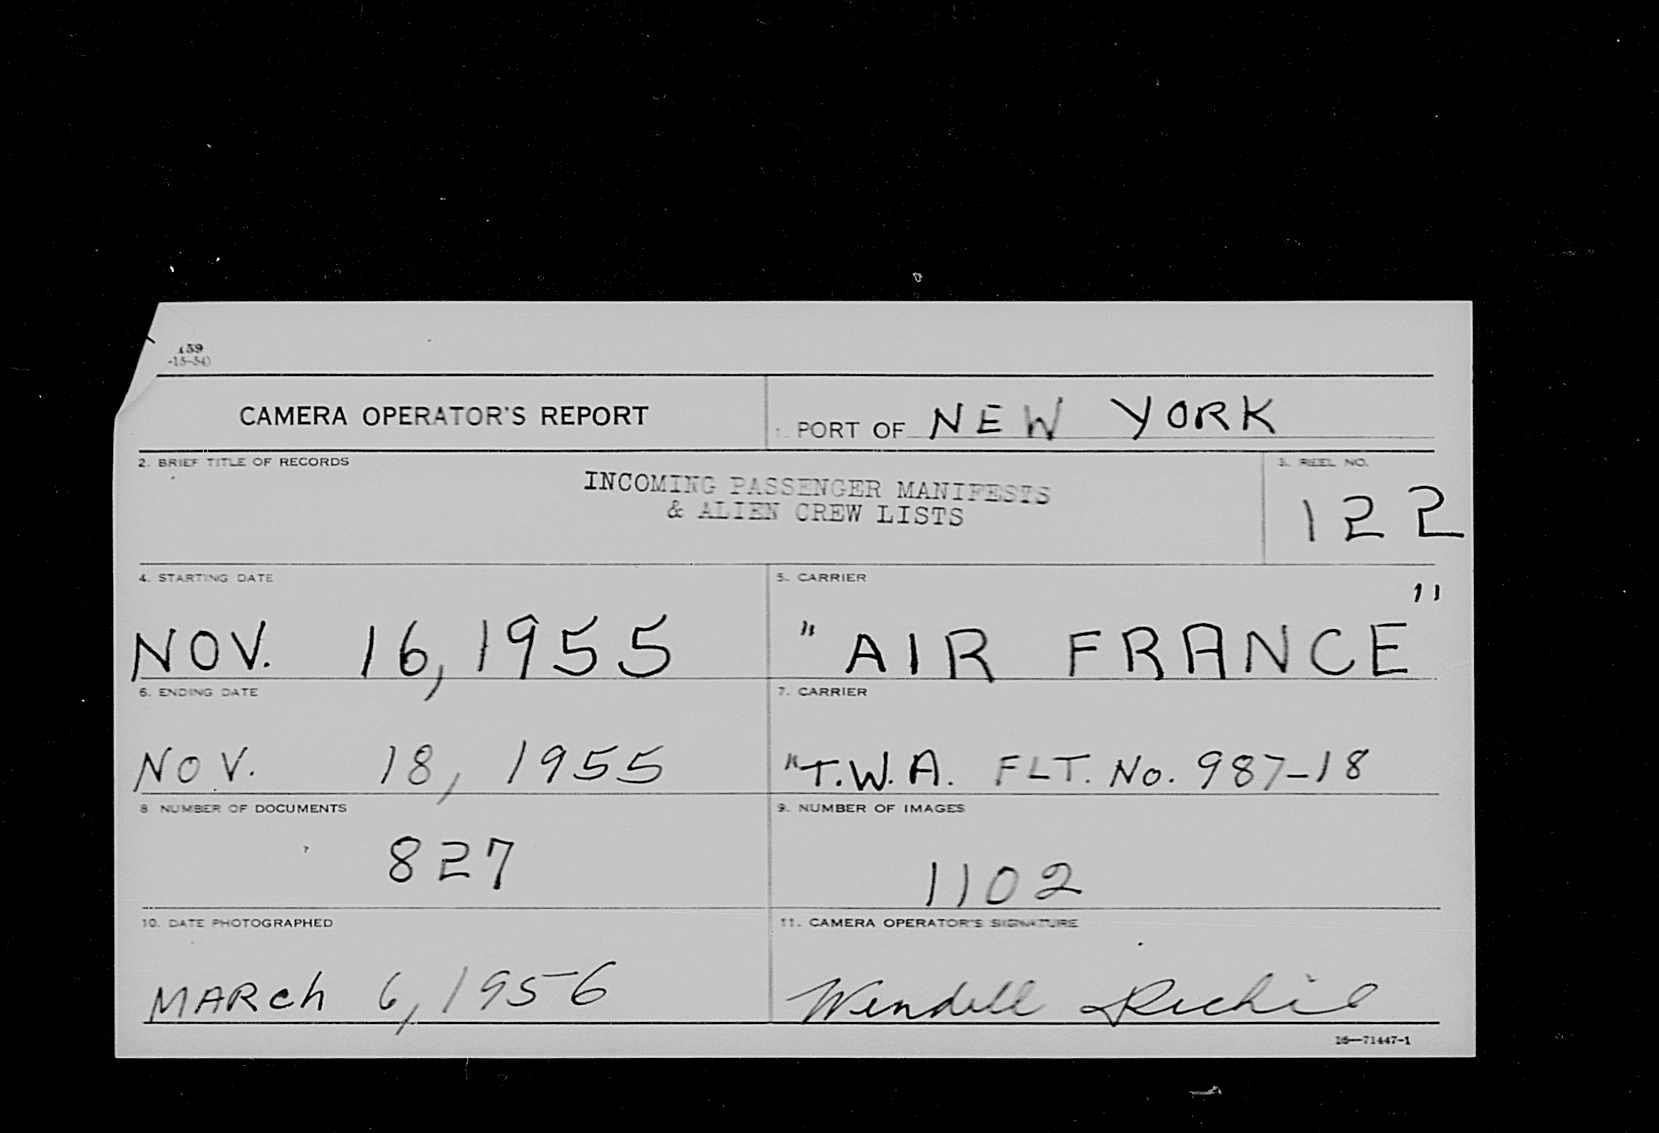 159
-15-54)
CAMERA OPERATOR'S REPORT
1. PORT OF NEW YORK
2. BRIEF TITLE OF RECORDS
INCOMING PASSENGER MANIFESTS
& ALIEN CREW LISTS
3. REEL NO.
122
4. STARTING DATE
NOV. 16, 1955
5. CARRIER
"AIR FRANCE"
6. ENDING DATE
NOV. 18, 1955
7. CARRIER
"T.W.A. FLT. No. 987-18
8. NUMBER OF DOCUMENTS
827
9. NUMBER OF IMAGES
1102
10. DATE PHOTOGRAPHED
MARch 6, 1956
11. CAMERA OPERATOR'S SIGNATURE
Wendell Richie
16—71447-1